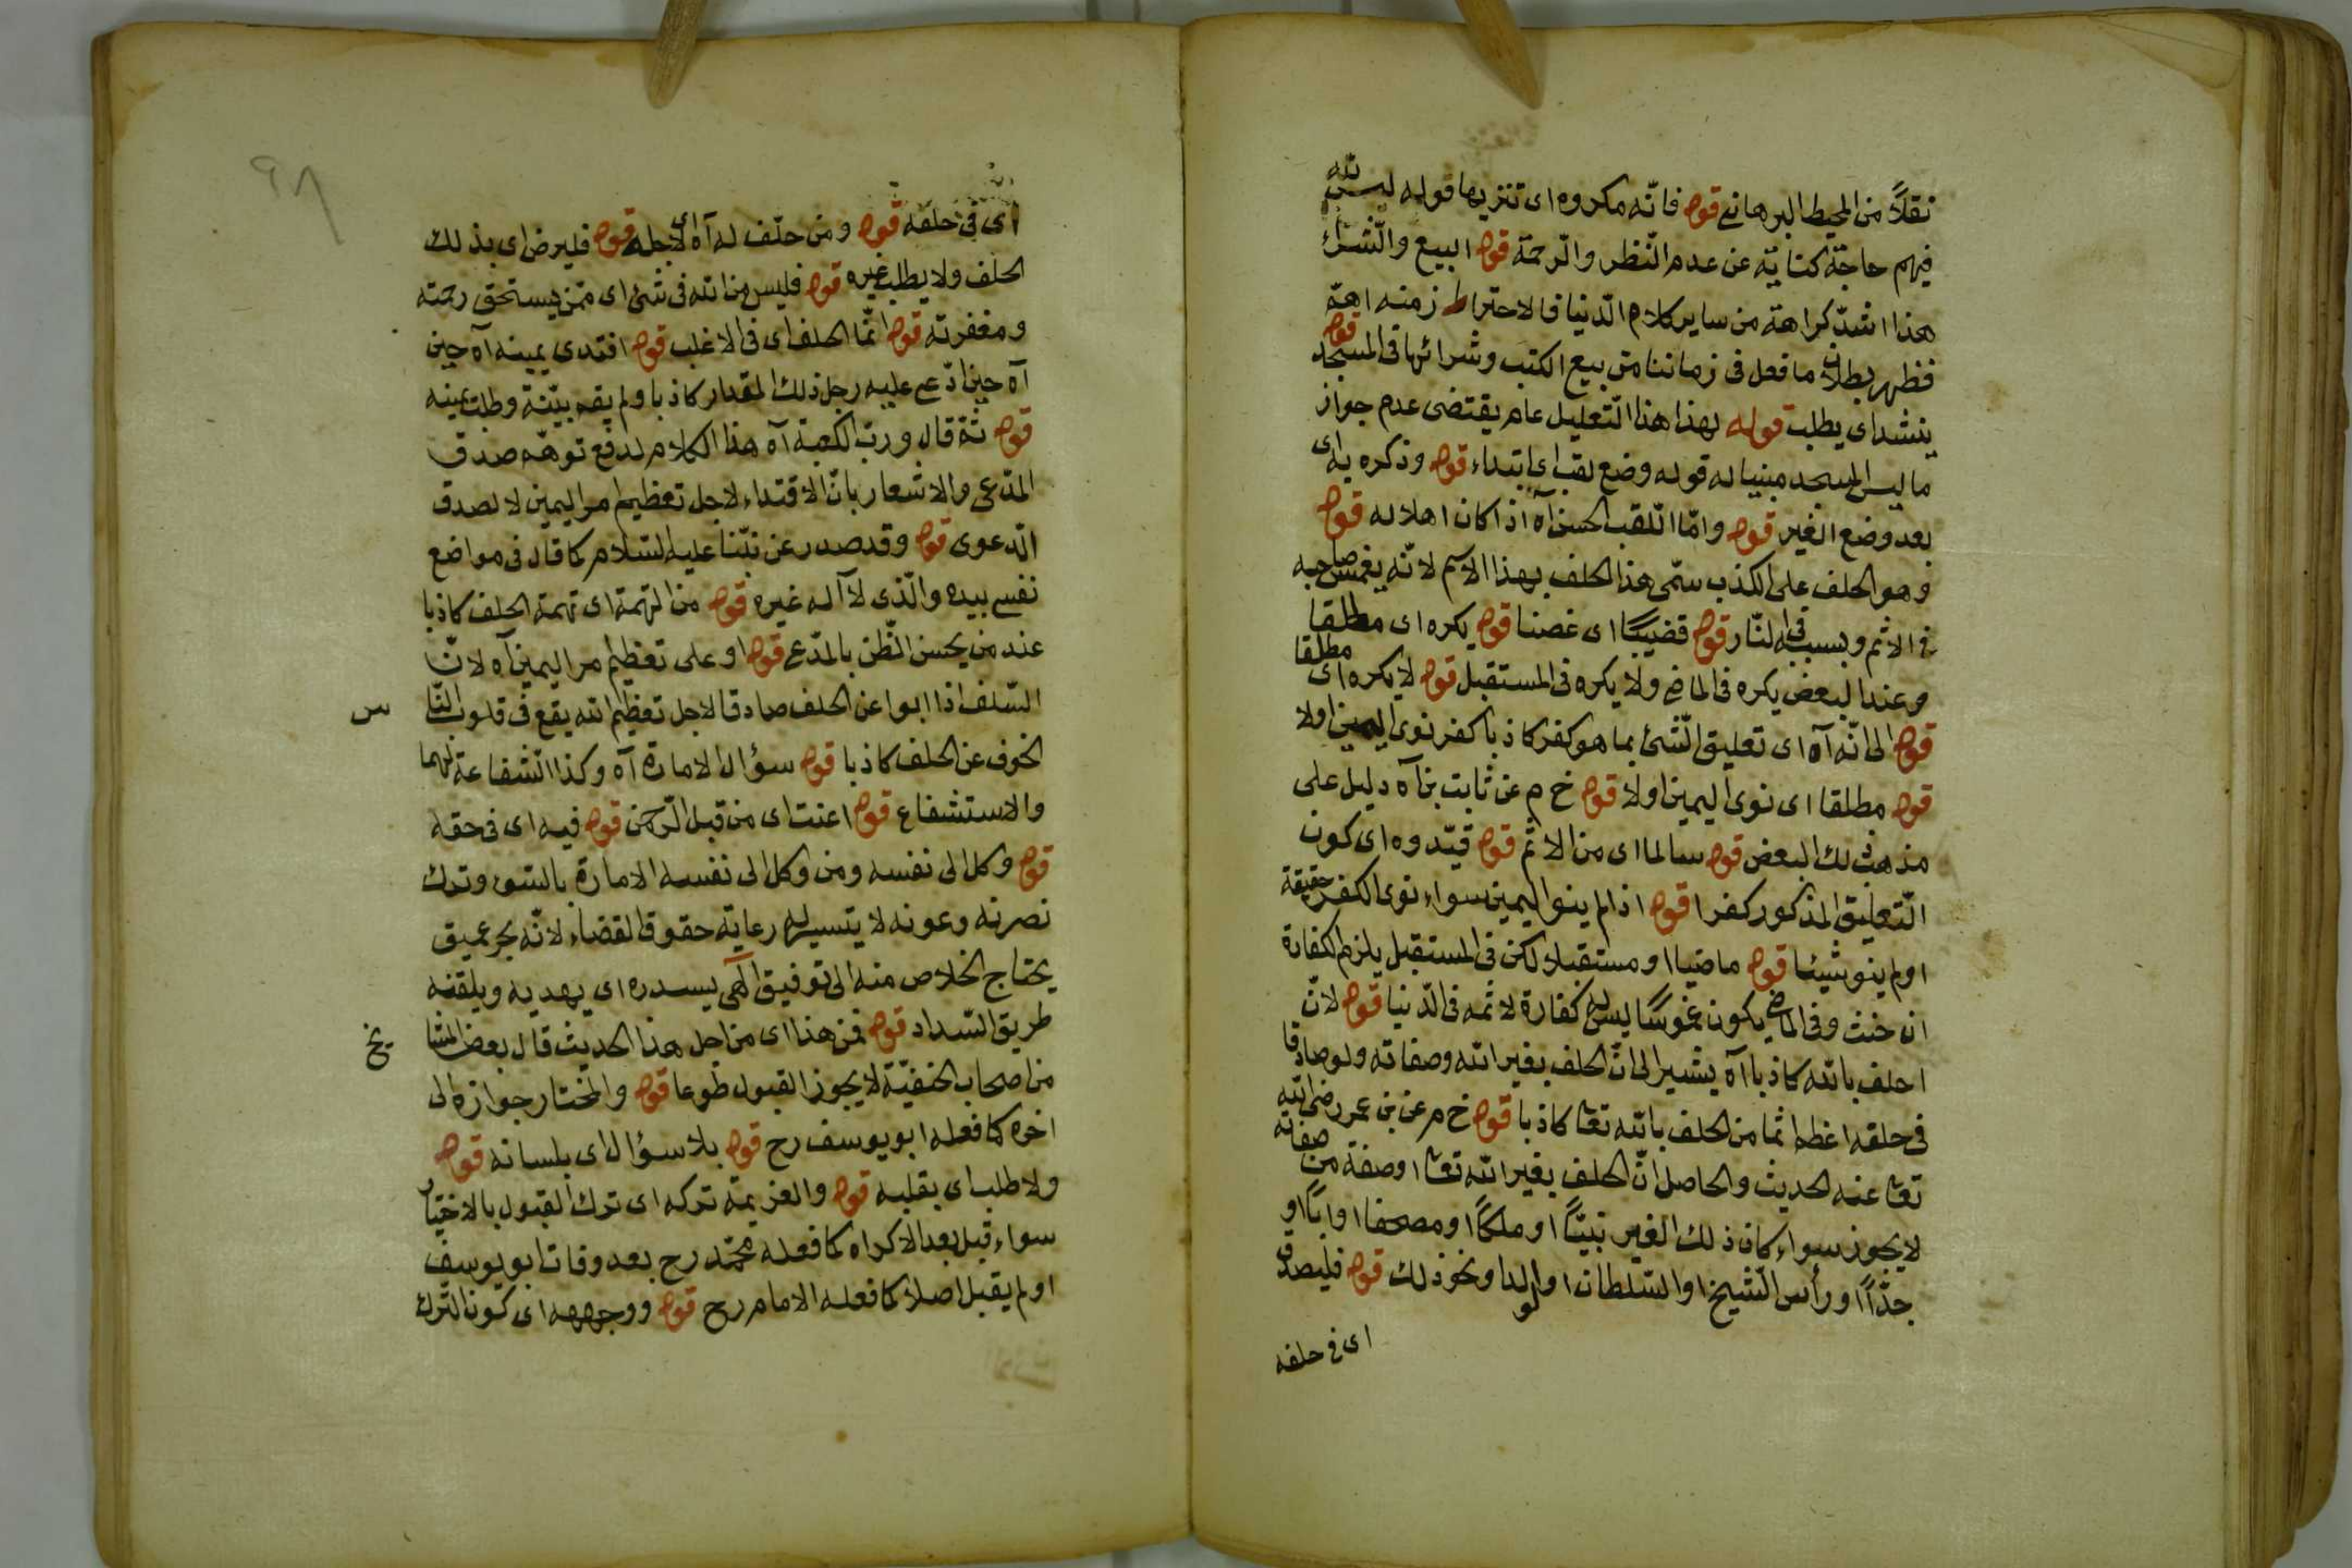 نقلاً من المحيط البرهانى قوله فانّه مكروه اى تنزيها قوله ليس لله
فيهم حاجة كناية عن عدم النّظر والرّحمة قوله البيع والشّراء
هذا اشدّ كراهة من ساير كلام الدّنيا فالاحتراز منه اهمّ
فظهر بطلان ما فعل فى زماننا من بيع الكتب وشرائها فى المسجد قوله
ينشد اى يطلب قوله لهذا هذا التّعليل عام يقتضى عدم جواز
ما ليس المسجد مبنيا له قوله وضع لقب اى ابتداء قوله وذكره به اى
بعد وضع الغير قوله وامّا اللّقب الحسن آه اذا كان اهلا له قوله
وهو الحلف على الكذب سمّى هذا الحلف بهذا الاسم لانّه يغمس صاحبه
فى الاثم وبسببه فى النّار قوله قضيبًا اى غصنا قوله يكره اى مطلقا
وعند البعض يكره فى الماضى ولا يكره فى المستقبل قوله لا يكره اى مطلقا
قوله الى انّه آه اى تعليق الشّئ بما هو كفر كاذبا كفر نوى اليمين اولا
قوله مطلقا اى نوى اليمين اولا قوله خ م عن ثابت بن آه دليل على
مذهب ذلك البعض قوله سالما اى من الاثم قوله قيّدوه اى كون
التّعليق المذكور كفرا قوله اذا لم ينو اليمين سواء نوى الكفر حقيقة
او لم ينو شيئا قوله ماضيا او مستقبلا لكن فى المستقبل يلزم الكفارة
ان حنث وفى الماضى يكون غموسًا ليس له كفارة لاثمه فى الدّنيا قوله لانّ
احلف بالله كاذبا آه يشير الى انّ الحلف بغير الله وصفاته ولو صادقا
فى حلفه اعظم اثما من الحلف بالله تعا كاذبا قوله خ م عن بن عمر رضى الله
تعا عنه الحديث والحاصل انّ الحلف بغير الله تعا او صفة من صفاته
لا يجوز سواء كان ذلك الغير نبيًّا او ملكًا او مصحفا او ابًا او
جدًّا او رأس الشّيخ او السّلطان او الولد او نحو ذلك قوله فليصدق
اى فى حلفه
٩٨
اى فى حلفه قوله ومن حلّف له آه اى لاجله قوله فليرض اى بذلك
الحلف ولا يطلب غيره قوله فليس من الله فى شئ اى ممّن يستحق رحمته
ومغفرته قوله انّما الحلف اى فى الاغلب قوله افتدى يمينه آه حين
آه حين ادّعى عليه رجل ذلك المقدار كاذبا ولم يقم بيّنة وطلب يمينه
قوله ثمّ قال وربّ الكعبة آه هذا الكلام لدفع توهّم صدق
المدّعى والاشعار بانّ الافتداء لاجل تعظيم امر اليمين لا لصدق
الدّعوى قوله وقد صدر عن نبيّنا عليه السّلام كما قال فى مواضع
نفسى بيده والّذى لا اله غيره قوله من التهمة اى تهمة الحلف كاذبا
عند من يحسن الظّن بالمدّعى قوله او على تعظيم امر اليمين آه لانّ
السّلف اذا ابوا عن الحلف صادقا لاجل تعظيم الله يقع فى قلوب النّا س
الخوف عن الحلف كاذبا قوله سؤال الامارة آه وكذا الشّفاعة لهما
والاستشفاع قوله اعنت اى من قبل الرّحمن قوله فيه اى فى حقه
قوله وكل الى نفسه ومن وكل الى نفسه الامارة بالسّوء وترك
نصرته وعونه لا يتيسر له رعاية حقوق القضاء لانّه بحر عميق
يحتاج الخلاص منه الى توفيق الٓهى يسدده اى يهديه ويلقنه
طريق السّداد قوله فمن هذا اى من اجل هذا الحديث قال بعض المشا يخ
من اصحاب الحنفيّة لا يجوز القبول طوعا قوله والمختار جوازه الى
اخره كما فعله ابو يوسف رح قوله بلا سؤال اى بلسانه قوله
ولا طلب اى بقلبه قوله والعزيمة تركه اى ترك القبول بالاختيار
سواء قبل بعد الاكراه كما فعله محمّد رح بعد وفات ابو يوسف
او لم يقبل اصلا كما فعله الامام رح قوله ووجهه اى كون التّرك